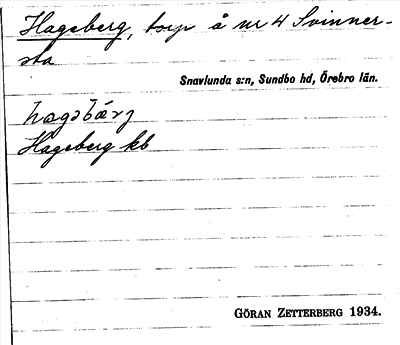 Hageberg, torp å nr 4 Svinner-
sta
Snavlunda s:n, Sundbo hd, Örebro län.
hagəbärj
Hageberg kb
GÖRAN ZETTERBERG 1934.